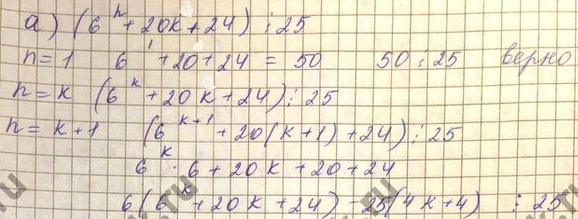 а) (6ⁿ + 20k + 24) ⋮ 25
n = 1 6¹ + 20 + 24 = 50 50 ⋮ 25 верно
n = k (6ᵏ + 20k + 24) ⋮ 25
n = k + 1 (6ᵏ⁺¹ + 20(k + 1) + 24) ⋮ 25
6ᵏ · 6 + 20k + 20 + 24
6(6ᵏ + 20k + 24) - 25(4k + 4) ⋮ 25